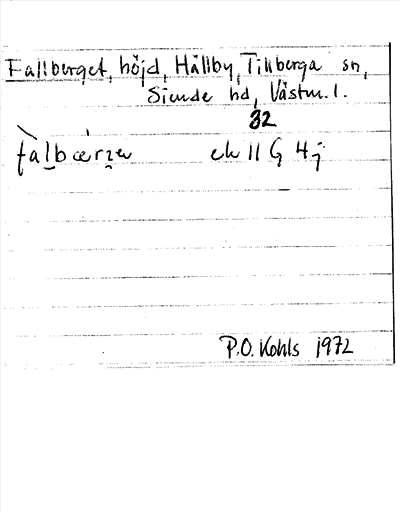 Fallberget, höjd, Hållby, Tillberga sn,
Siende hd, Västm. l.
32
fàlbærze ek 11 G 4j
P.O. Kohls 1972